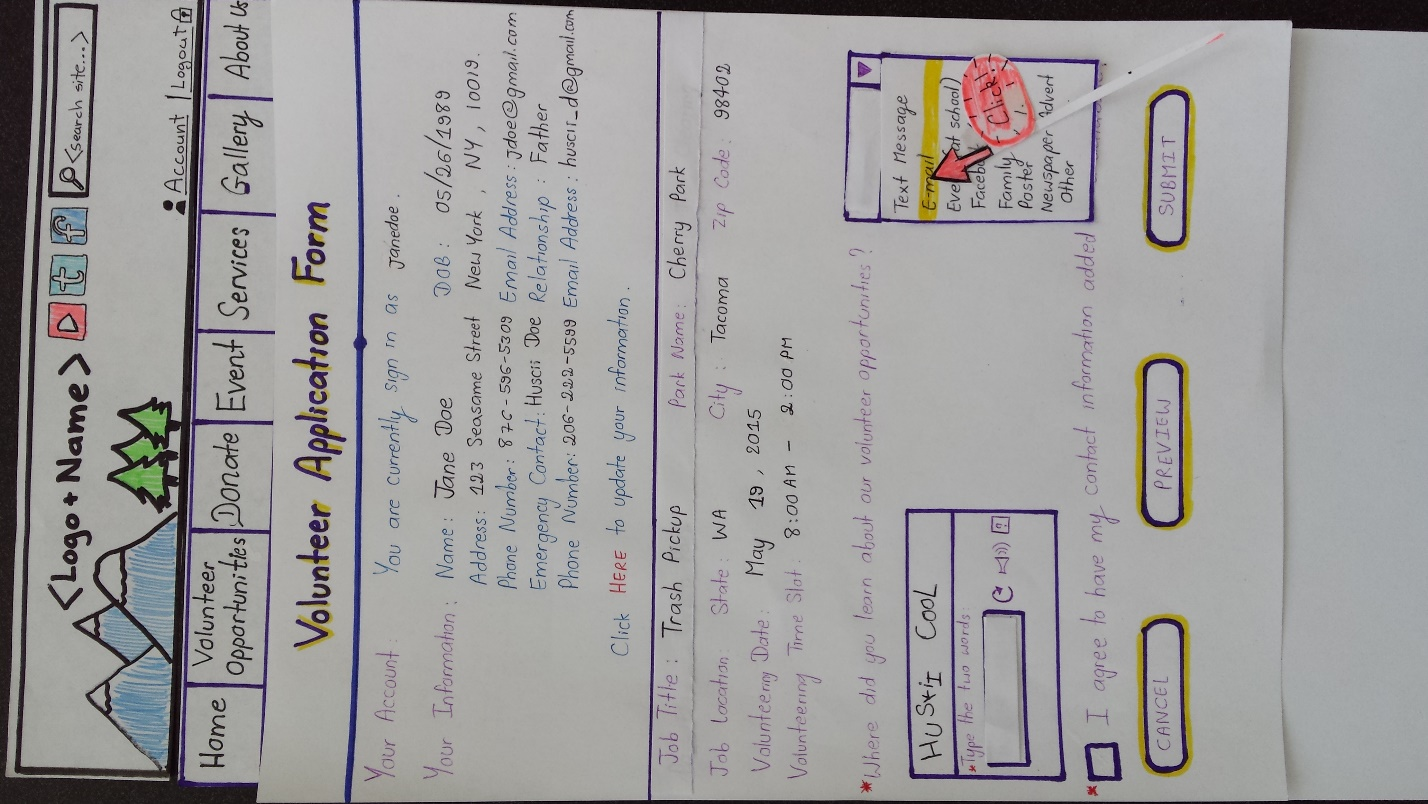 <Logo+Name>
<search site...>
Account | Logout
Home
Volunteer Opportunities
Donate
Event
Services
Gallery
About Us
Volunteer Application Form
Your Account: You are currently sign in as janedoe.
Your Information: Name: Jane Doe DOB: 05/26/1989
Address: 123 Seasame Street New York, NY, 10019.
Phone Number: 876-596-5309 Email Address: jdoe@gmail.com
Emergency Contact: Huscii Doe Relationship: Father
Phone Number: 206-222-5599 Email Address: huscii_d@gmail.com
Click HERE to update your information.
Job Title: Trash Pickup Park Name: Cherry Park
Job Location: State: WA City: Tacoma Zip Code: 98402
Volunteering Date: May 19, 2015
Volunteering Time Slot: 8:00 AM - 2:00 PM
*Where did you learn about our volunteer opportunities?
Text Message
E-mail
school)
Family
Poster
Newspaper Advert
Other
Click!
HuS*iI CooL
*Type the two words:
?
* I agree to have my contact information added
CANCEL
PREVIEW
SUBMIT